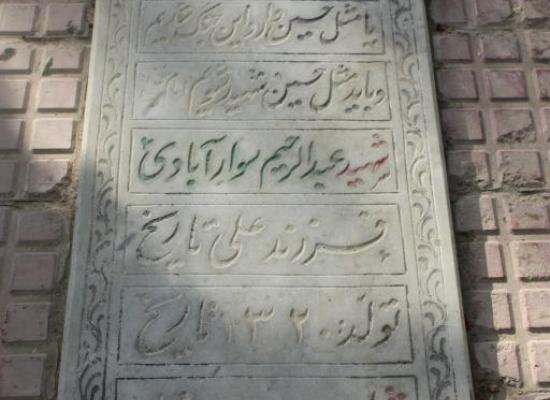 یا مثل حسین وارد این جنگ شدیم
و باید مثل حسین شهید شویم
شهید عبدالرحیم سوارآبادی
فرزند علی تاریخ
تولد ۱۳۲۰ تاریخ